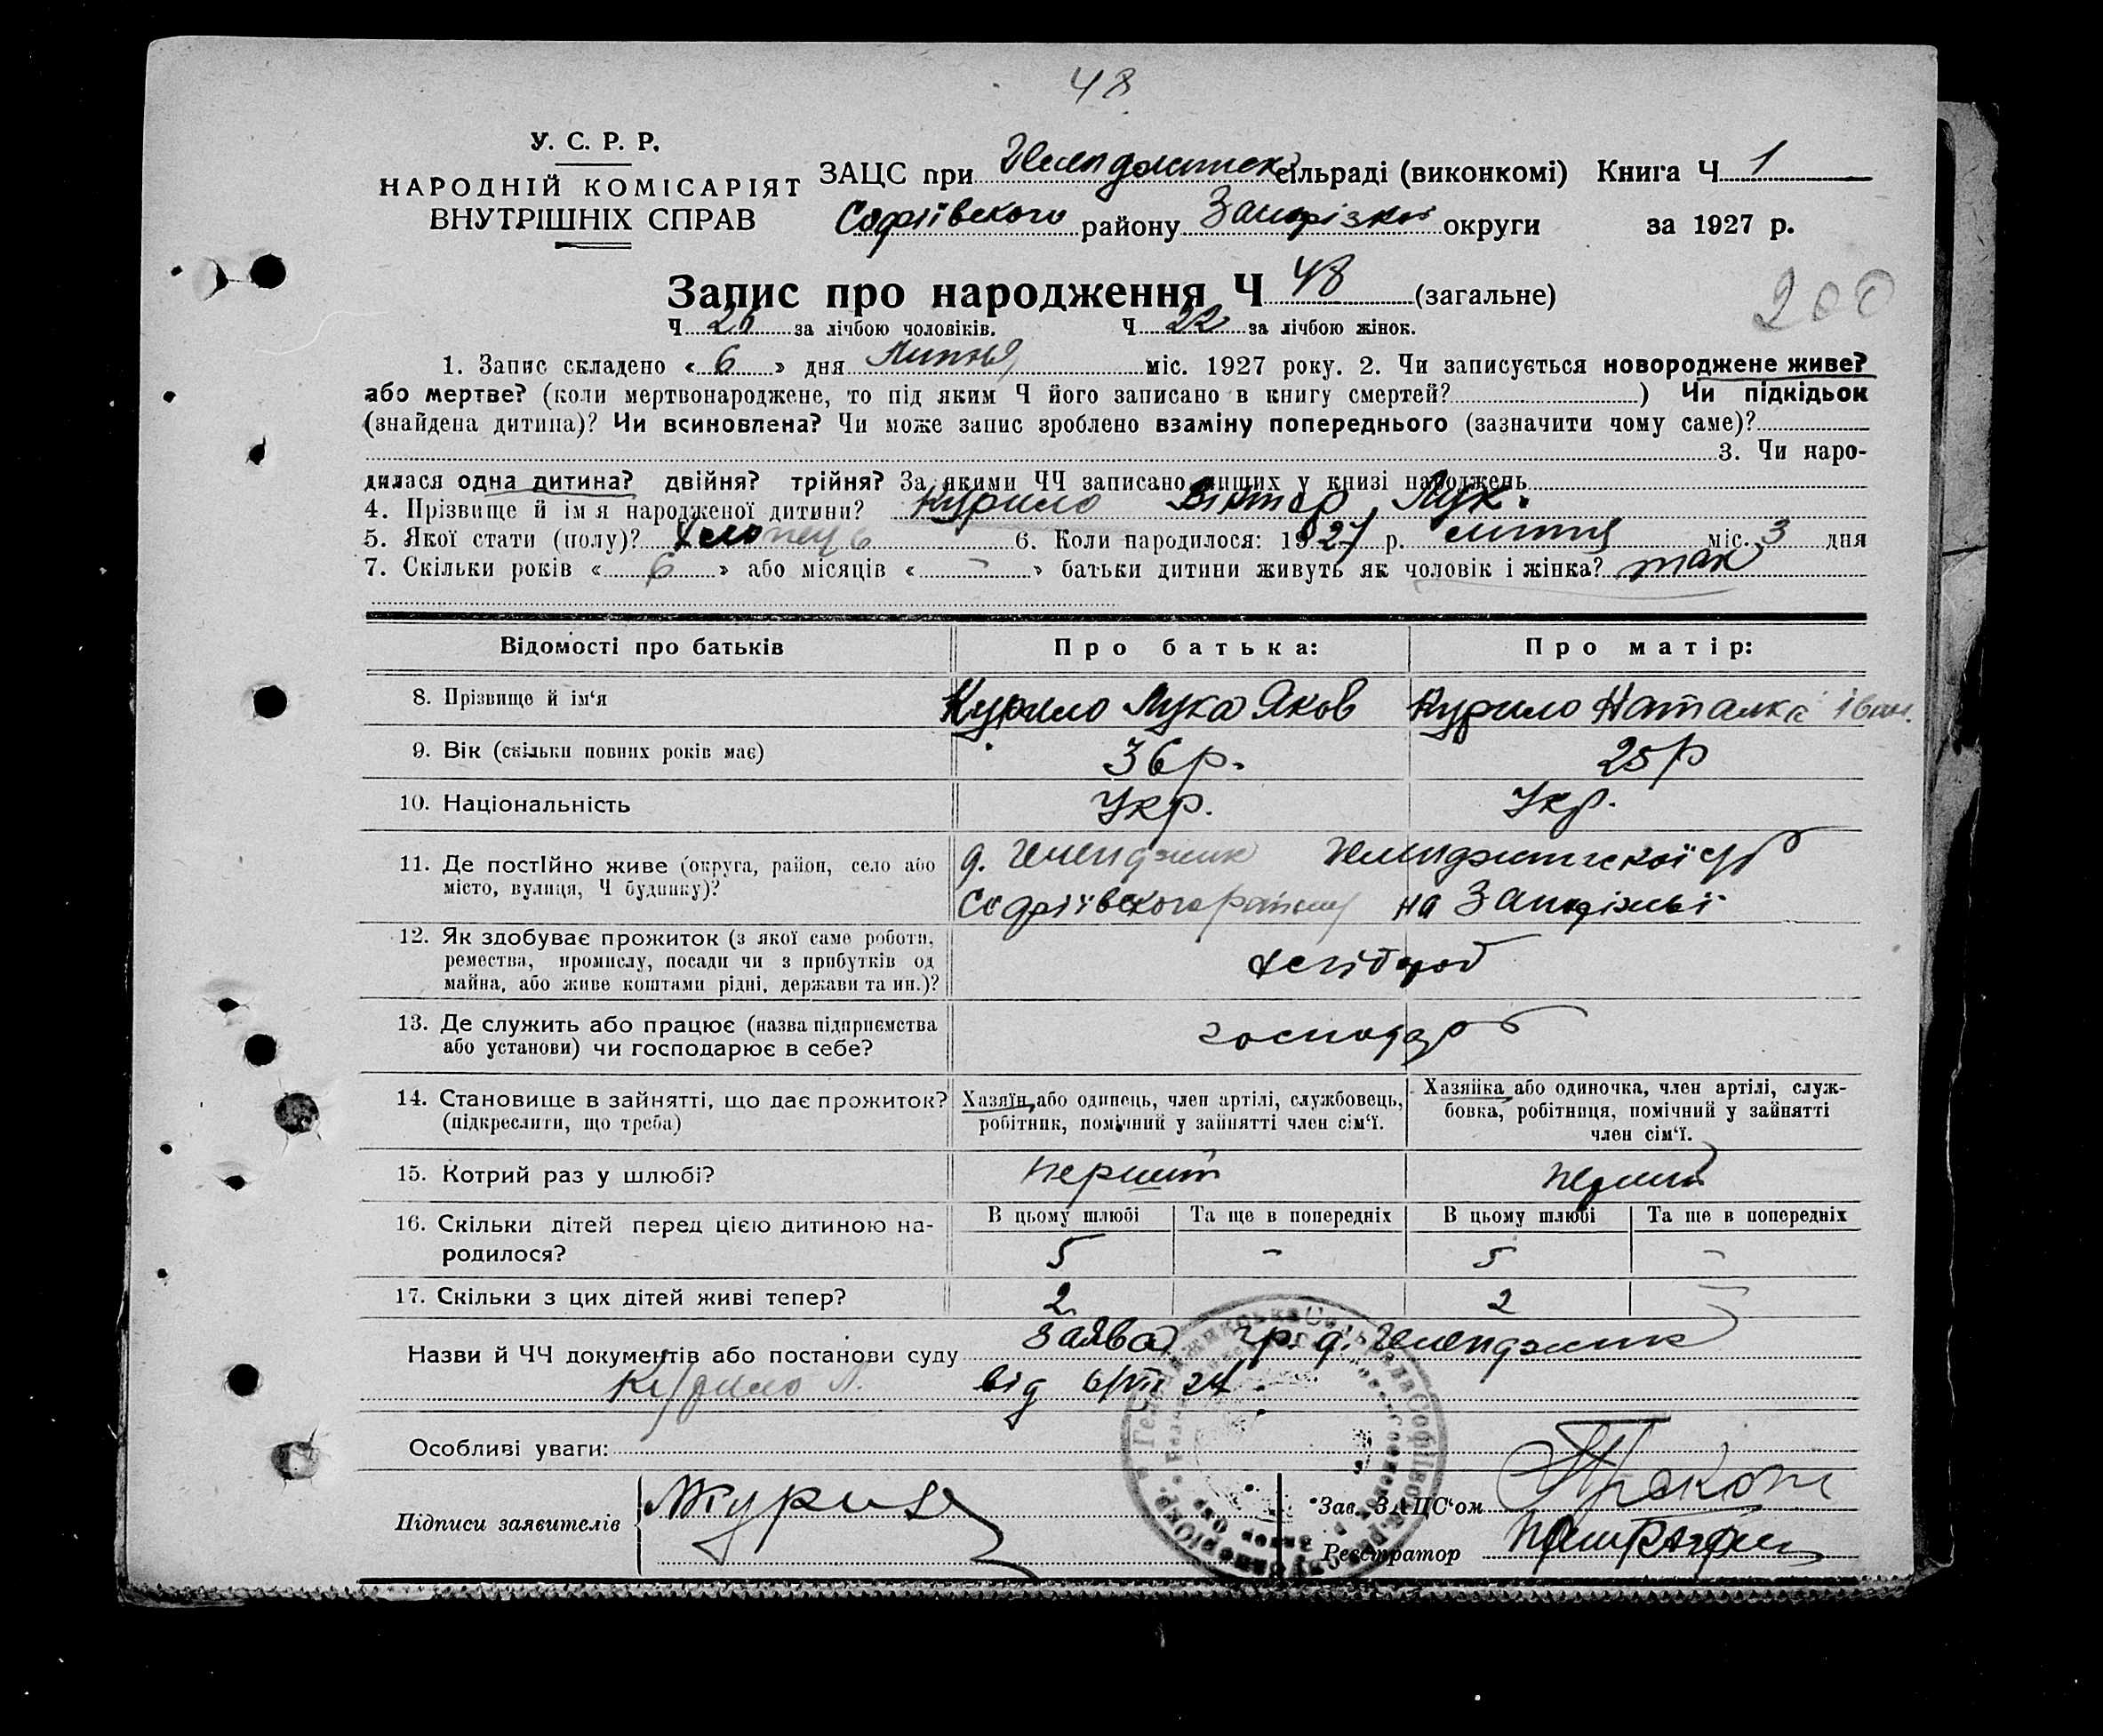 48
У. С. Р. Р.
НАРОДНІЙ КОМІСАРІЯТ
ВНУТРІШНІХ СПРАВ
ЗАЦС при сільраді (виконкомі) Книга Ч 1
Софіївського району Запорізької округи за 1927 р.
Запис про народження Ч 48 (загальне)
200
Ч 26 за лічбою чоловіків. Ч 22 за лічбою жінок.
1. Запис складено « 6 » дня Липня міс. 1927 року. 2. Чи записується новороджене живе?
або мертве? (коли мертвонароджене, то під яким Ч його записано в книгу смертей? ) Чи підкідьок
(знайдена дитина)? Чи всиновлена? Чи може запис зроблено взаміну попереднього (зазначити чому саме)?
3. Чи наро-
дилася одна дитина? двійня? трійня? За якими ЧЧ записано инших у книзі народжень
4. Прізвище й ім я народженої дитини? Курило Віктор Лук.
5. Якої стати (полу)? Хлопець 6. Коли народилося: 1927 р. липня міс. 3 дня
7. Скільки років « 6 » або місяців « - » батьки дитини живуть як чоловік і жінка? так
Відомості про батьків Про батька: Про матір:
8. Прізвище й ім‘я Курило Лука Яков Курило Наталка Іван.
9. Вік (скільки повних років має) 36 р. 25 р
10. Національність Укр. Укр.
11. Де постійно живе (округа, район, село або д. Геленджик Геленджикської с/р
місто, вулиця, Ч будинку)? Софіївського району на Запоріжжі
12. Як здобуває прожиток (з якої саме роботи, хлібороб
ремества, промислу, посади чи з прибутків од
майна, або живе коштами рідні, держави та ин.)?
13. Де служить або працює (назва підприємства господар
або установи) чи господарює в себе?
14. Становище в зайнятті, що дає прожиток? Хазяїн, або одинець, член артілі, службовець, Хазяйка або одиночка, член артілі, служ-
(підкреслити, що треба) робітник, помічний у зайнятті член сім‘ї. бовка, робітниця, помічний у зайнятті
член сім‘ї.
15. Котрий раз у шлюбі? перший перший
16. Скільки дітей перед цією дитиною на- В цьому шлюбі Та ще в попередніх В цьому шлюбі Та ще в попередніх
родилося? 5 - 5 -
17. Скільки з цих дітей живі тепер? 2 2
Назви й ЧЧ документів або постанови суду заява гр. д. Геленджик
Курило Л. від 6/VII 27.
Особливі уваги:
Підписи заявителів
Зав. ЗАЦС‘ом
Реєстратор